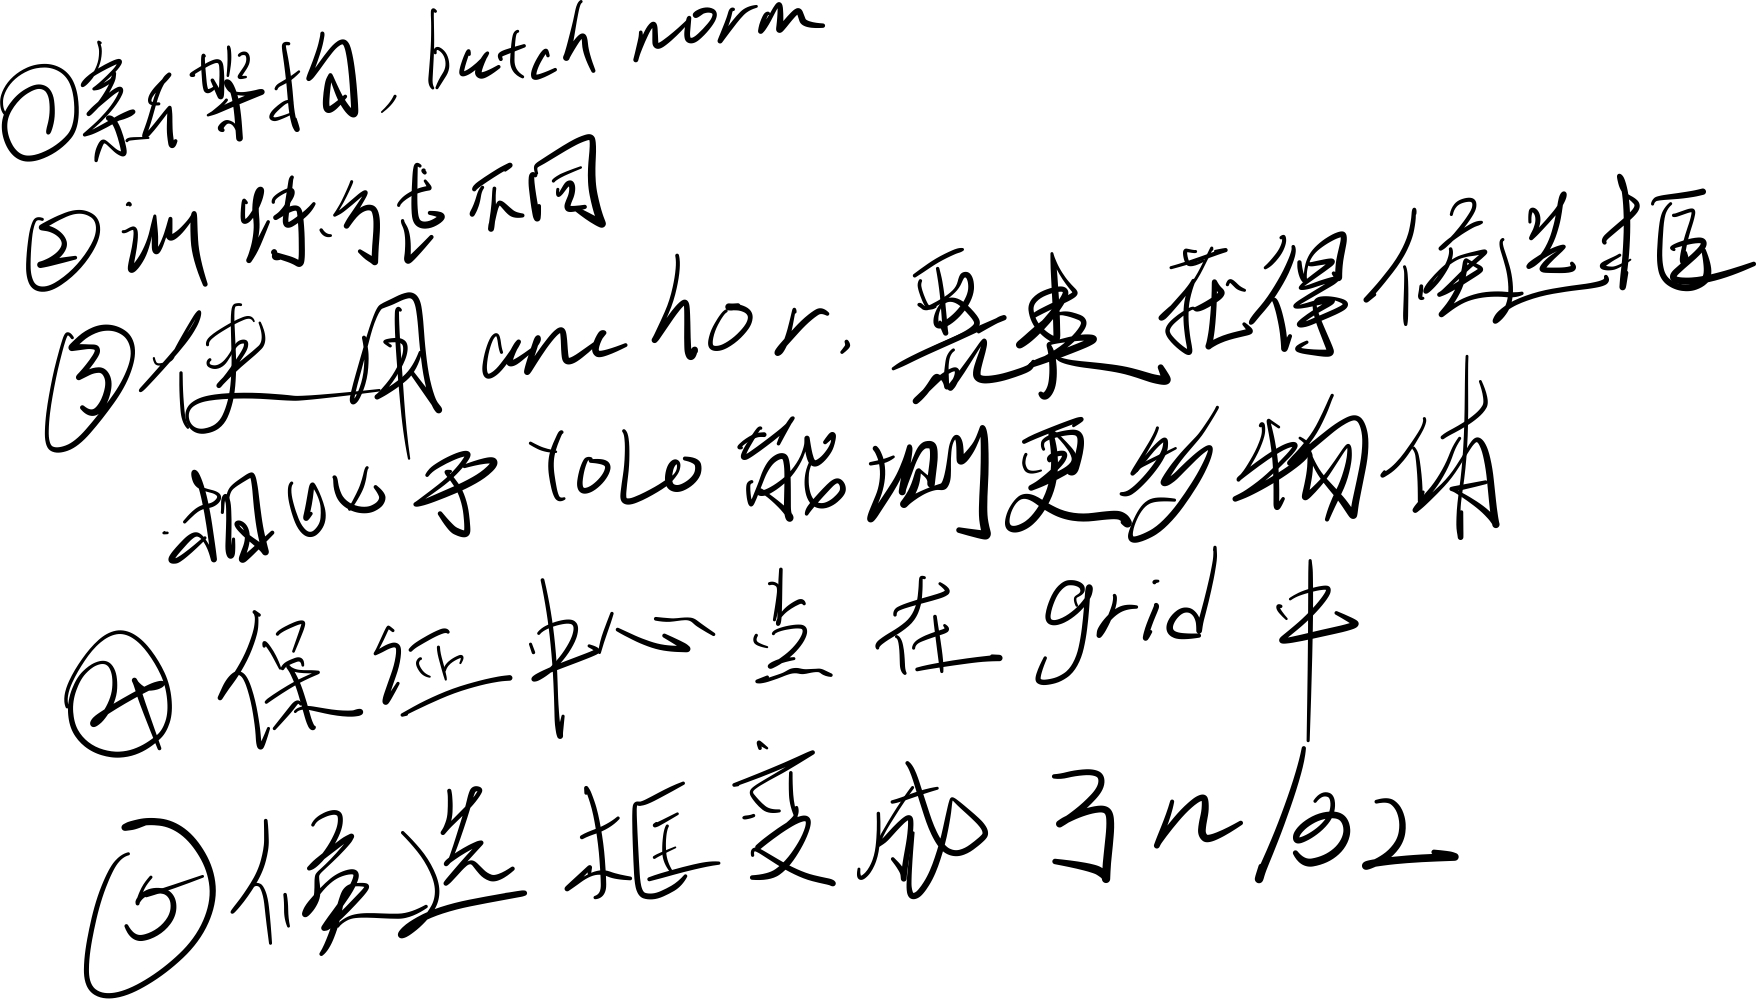 ①新架构, batch norm
②训练方式不同
③使用anchor.聚类获得候选框
相比于YOLO能测更多物体
④保证中心点在grid中
⑤候选框变成了n/32